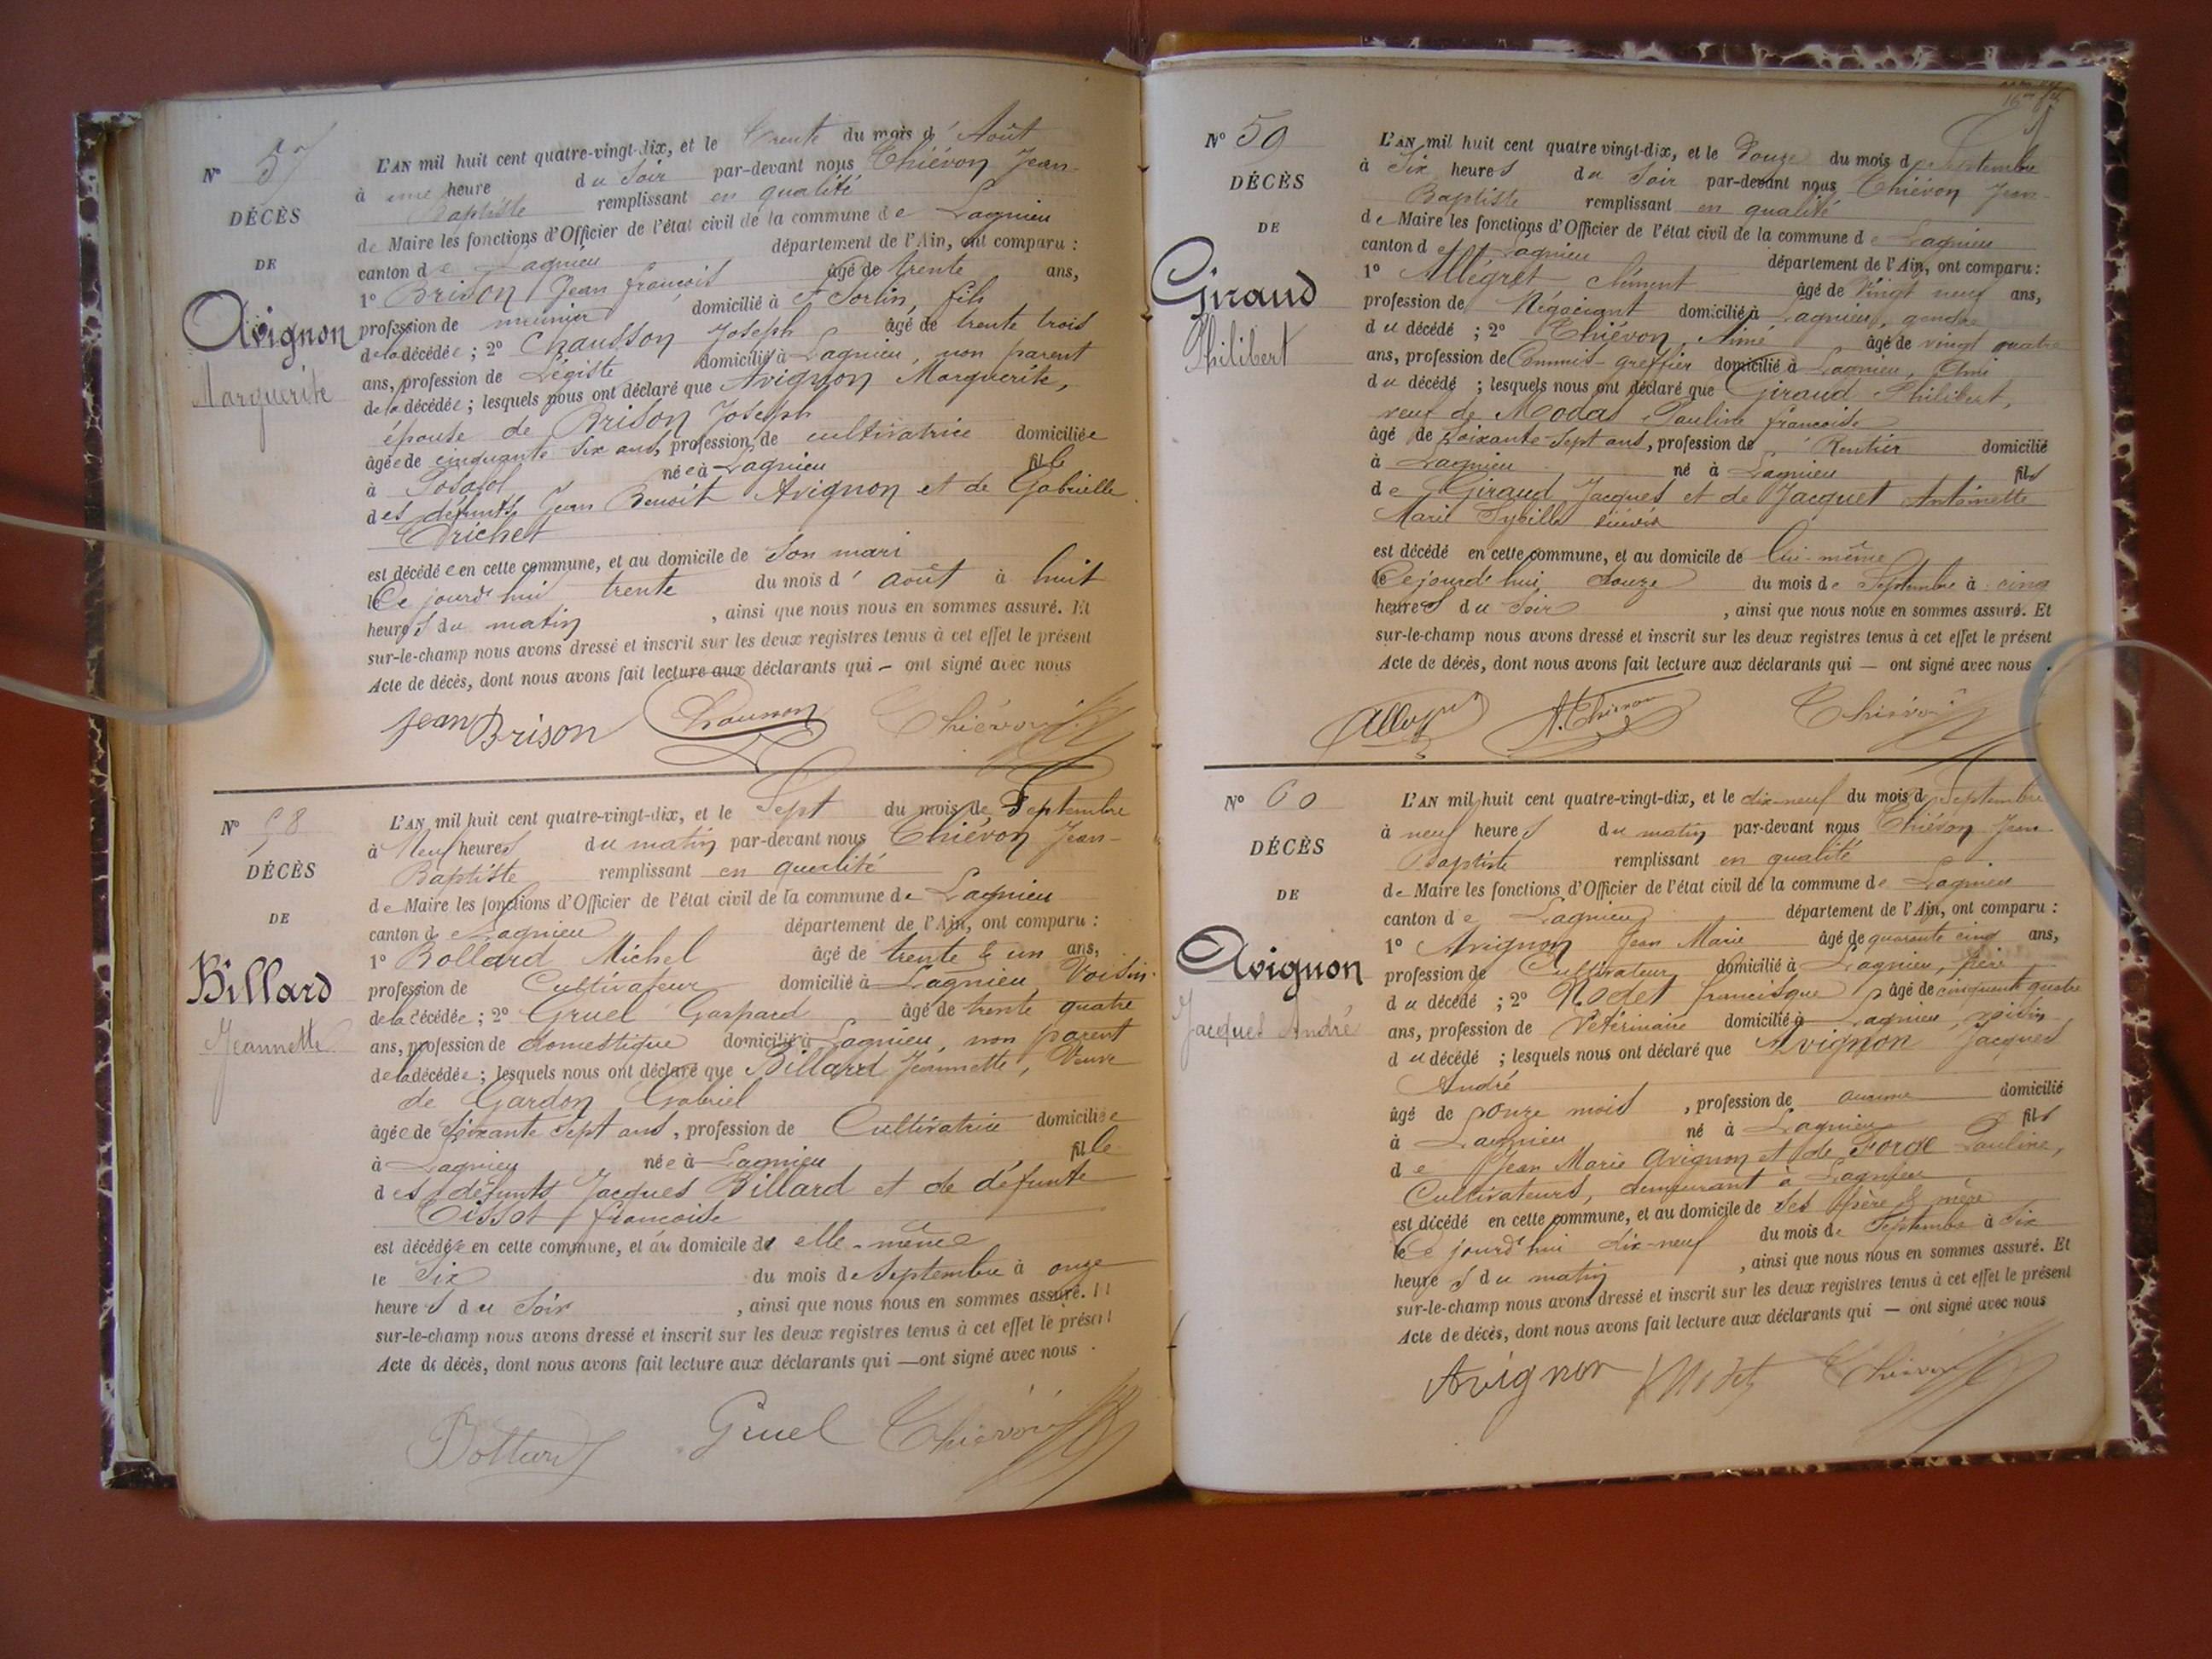 N° 57
DÉCÈS
DE
Avignon
Marguerite
L'AN mil huit cent quatre-vingt-dix, et le trente du mois d'Août
à une heure du soir par-devant nous Thiévon Jean-
Baptiste remplissant en qualité
de Maire les fonctions d'Officier de l'état civil de la commune de Lagnieu
canton de Lagnieu département de l'Ain, ont comparu :
1° Brison Jean françois âgé de trente ans,
profession de meunier domicilié à St Sorlin, fils
de la décédée ; 2° Chausson Joseph âgé de trente trois
ans, profession de Légiste domicilié à Lagnieu, non parent
de la décédée ; lesquels nous ont déclaré que Avignon Marguerite,
épouse de Brison Joseph
âgée de cinquante six ans, profession de cultivatrice domiciliée
à Posafol née à Lagnieu fille
des défunts Jean Benoit Avignon et de Gabrielle
Trichet
est décédée en cette commune, et au domicile de son mari
le Ce jourd'hui trente du mois d'août à huit
heures du matin, ainsi que nous nous en sommes assuré. Et
sur-le-champ nous avons dressé et inscrit sur les deux registres tenus à cet effet le présent
Acte de décès, dont nous avons fait lecture aux déclarants qui — ont signé avec nous
Jean Brison Chausson Thiévon
N° 58
DÉCÈS
DE
Billard
Jeannette
L'AN mil huit cent quatre-vingt-dix, et le Sept du mois de Septembre
à Neuf heures du matin par-devant nous Thiévon Jean-
Baptiste remplissant en qualité
de Maire les fonctions d'Officier de l'état civil de la commune de Lagnieu
canton de Lagnieu département de l'Ain, ont comparu :
1° Bollard Michel âgé de trente & un ans,
profession de Cultivateur domicilié à Lagnieu, Voisin
de la décédée ; 2° Gruel Gaspard âgé de trente quatre
ans, profession de domestique domicilié à Lagnieu, non parent
de la décédée ; lesquels nous ont déclaré que Billard Jeannette, Veuve
de Gardon Gabriel
âgée de soixante sept ans, profession de Cultivatrice domiciliée
à Lagnieu née à Lagnieu fille
des défunts Jacques Billard et de défunte
Tissot françoise
est décédée en cette commune, et au domicile de elle-même
le Six du mois de Septembre à onze
heures du Soir, ainsi que nous nous en sommes assuré. Et
sur-le-champ nous avons dressé et inscrit sur les deux registres tenus à cet effet le présent
Acte de décès, dont nous avons fait lecture aux déclarants qui — ont signé avec nous.
Bollard Gruel Thiévon
N° 59
DÉCÈS
DE
Giraud
Philibert
L'AN mil huit cent quatre vingt-dix, et le Douze du mois de Septembre
à Six heures du Soir par-devant nous Thiévon Jean-
Baptiste remplissant en qualité
de Maire les fonctions d'Officier de l'état civil de la commune de Lagnieu
canton de Lagnieu département de l'Ain, ont comparu :
1° Allégret Clément âgé de Vingt neuf ans,
profession de Négociant domicilié à Lagnieu, gendre
du décédé ; 2° Thiévon Aimé âgé de vingt quatre
ans, profession de Commis-greffier domicilié à Lagnieu, Ami
du décédé ; lesquels nous ont déclaré que Giraud Philibert,
veuf de Modas Pauline françoise
âgé de Soixante-sept ans, profession de Rentier domicilié
à Lagnieu né à Lagnieu fils
de Giraud Jacques et de Jacquet Antoinette
Marie Sybille
est décédé en cette commune, et au domicile de lui-même
le Ce jourd'hui douze du mois de Septembre à cinq
heures du Soir, ainsi que nous nous en sommes assuré. Et
sur-le-champ nous avons dressé et inscrit sur les deux registres tenus à cet effet le présent
Acte de décès, dont nous avons fait lecture aux déclarants qui — ont signé avec nous.
A. Thiévon Thiévon
N° 60
DÉCÈS
DE
Avignon
Jacques André
L'AN mil huit cent quatre-vingt-dix, et le dix-neuf du mois de Septembre
à neuf heures du matin par-devant nous Thiévon Jean
Baptiste remplissant en qualité
de Maire les fonctions d'Officier de l'état civil de la commune de Lagnieu
canton de Lagnieu département de l'Ain, ont comparu :
1° Avignon Jean Marie âgé de quarante cinq ans,
profession de Cultivateur domicilié à Lagnieu, père
du décédé ; 2° Rodet francisque âgé de cinquante quatre
ans, profession de Vétérinaire domicilié à Lagnieu, voisin
du décédé ; lesquels nous ont déclaré que Avignon Jacques
André
âgé de onze mois, profession de aucune domicilié
à Lagnieu né à Lagnieu fils
de Jean Marie Avignon et de Forge Pauline,
Cultivateurs, demeurant à Lagnieu
est décédé en cette commune, et au domicile de ses père & mère
le Ce jourd'hui dix-neuf du mois de Septembre à Six
heures du matin, ainsi que nous nous en sommes assuré. Et
sur-le-champ nous avons dressé et inscrit sur les deux registres tenus à cet effet le présent
Acte de décès, dont nous avons fait lecture aux déclarants qui — ont signé avec nous
Avignon Rodet Thiévon